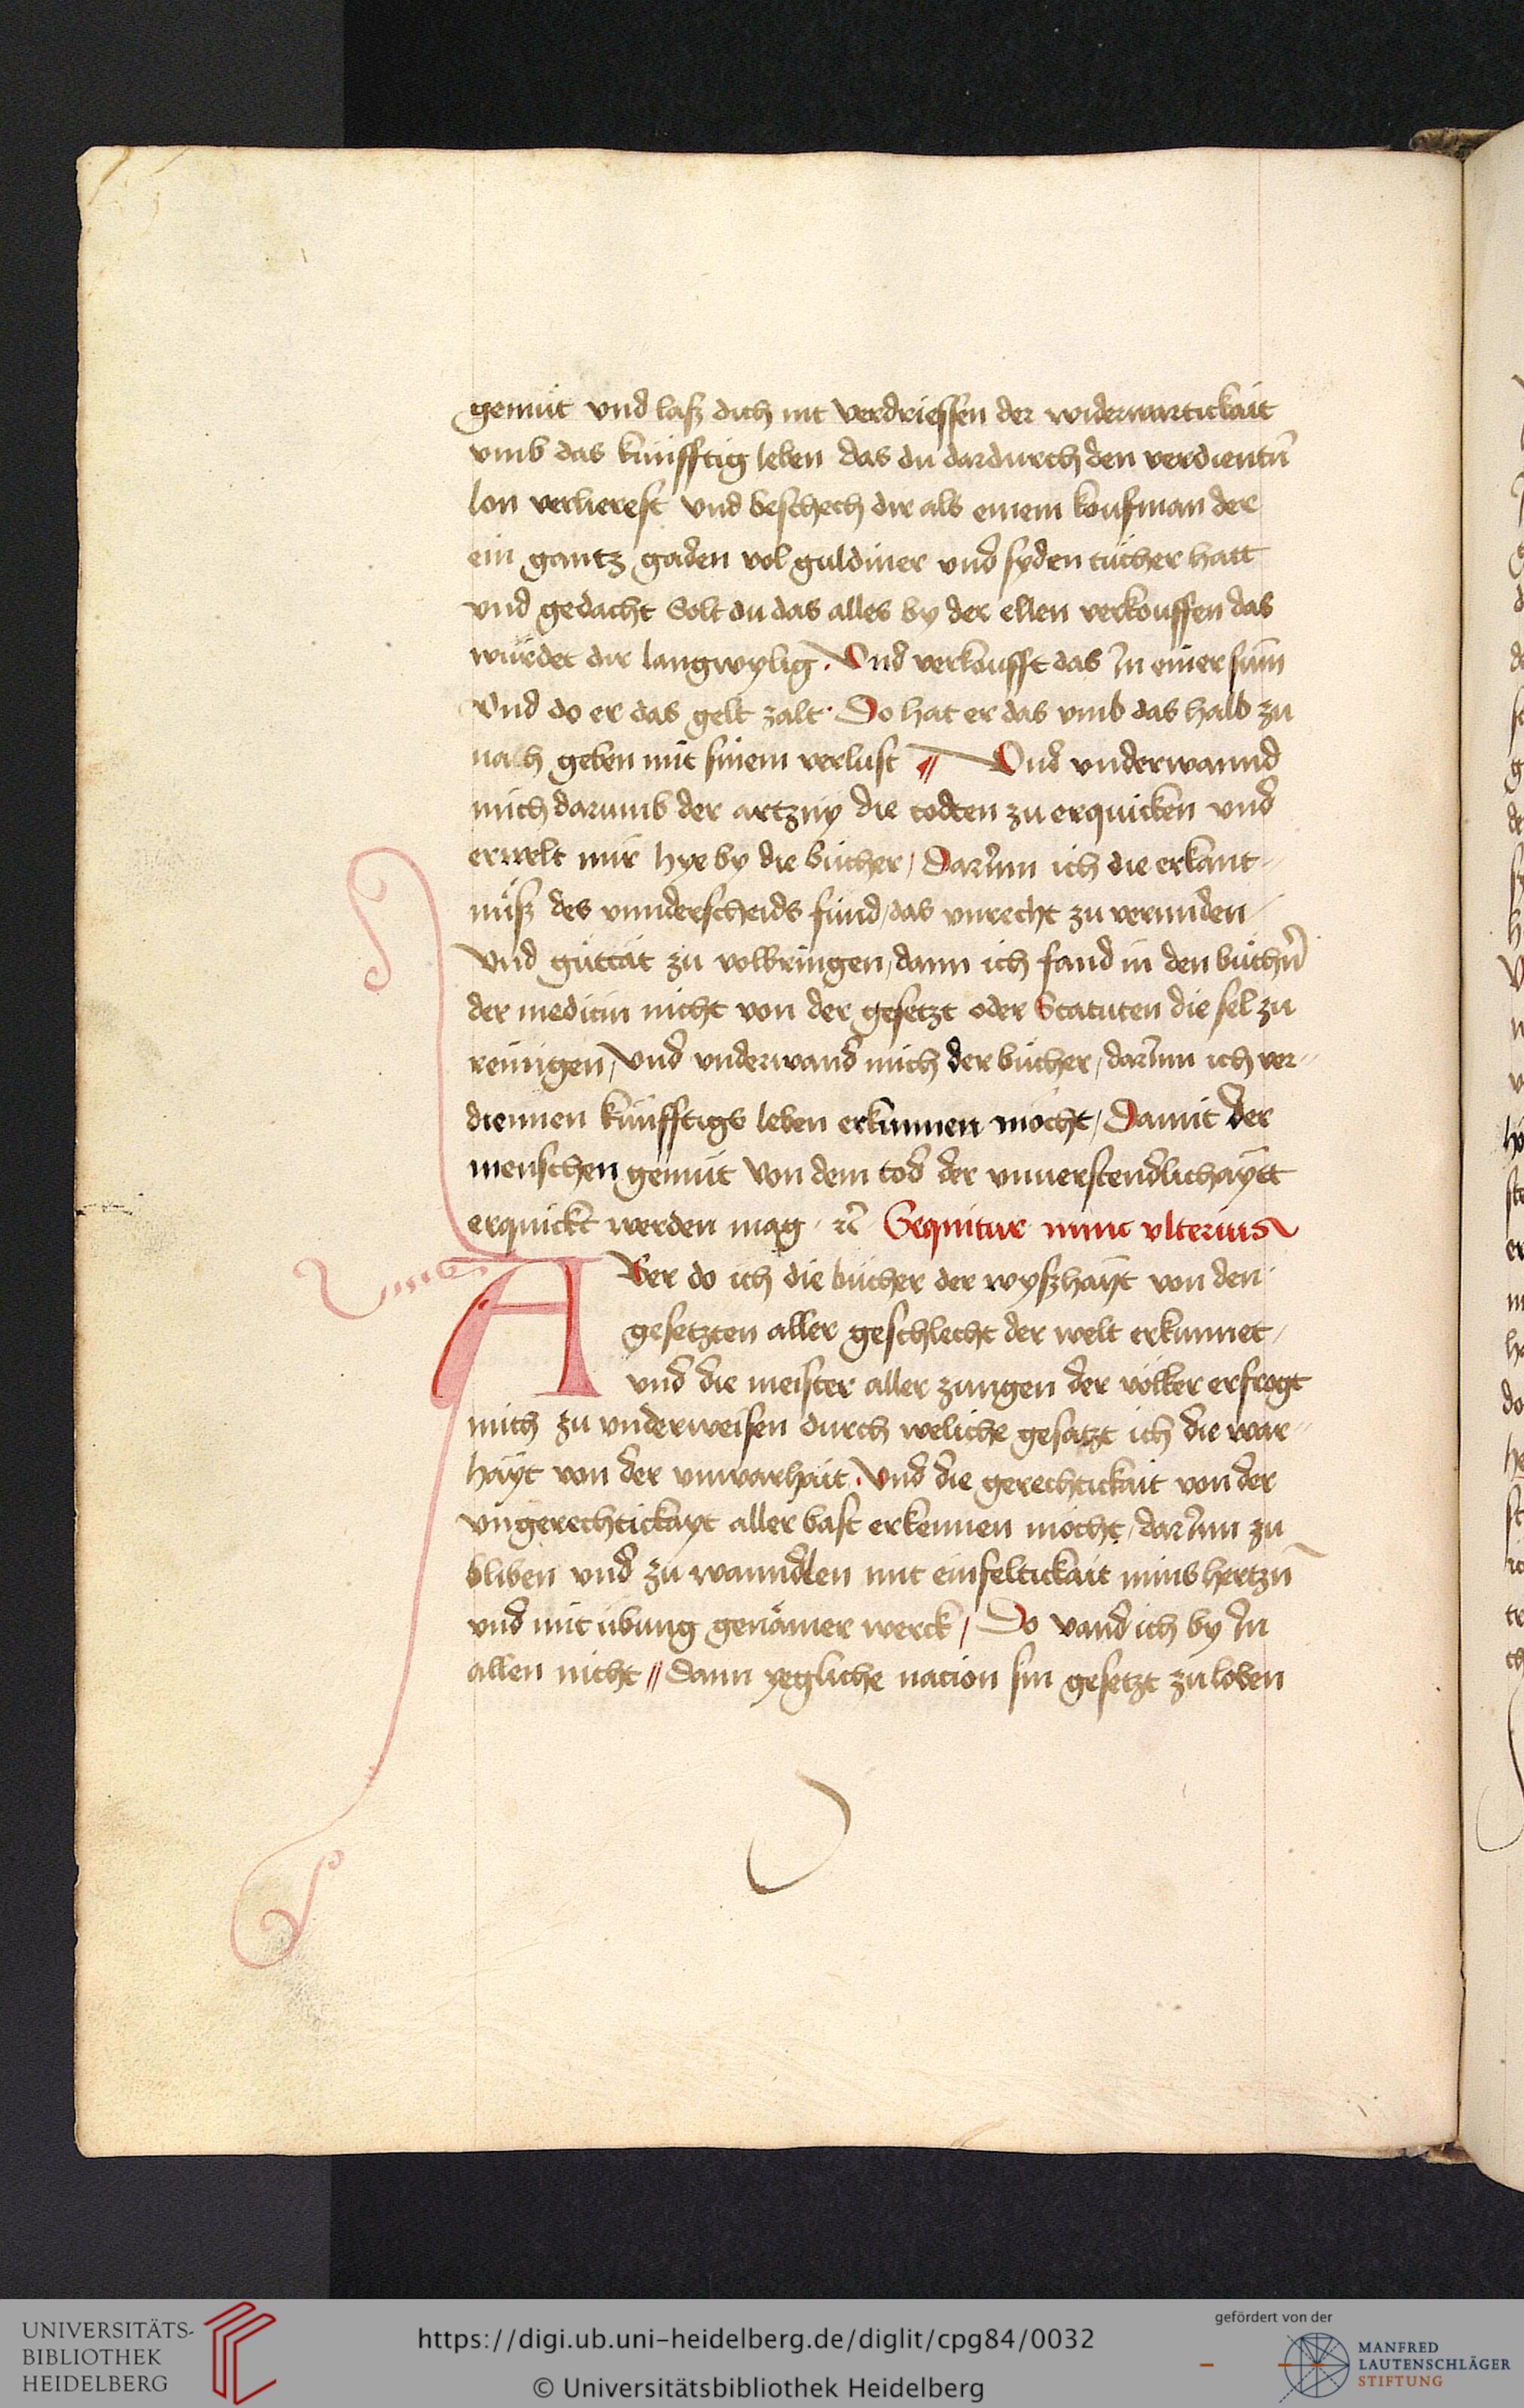 gemüt vnd lasz dich nit verdriessen der widerwartickait
vmb das künfftig leben das du dardurch den verdientñ
lon verlierest vnd beschech dir als einem koufman der
ein gantz gaden vol guldiner vnd syden tücher hatt
vnd gedacht Solt du das alles by der ellen verkouffen das
würdet dir langwylig . Vnd verkoufft das In einer sum̄
Vnd do er das gelt zalt · Do hat er das vmb das halb zu
nach geben mit sinem verlust // Vnd vnderwannd
mich darumb der artzny die todten zu erquicken vnd
erwelt mir hye by die bücher / Dar Inn ich die erkant-
nüsz des vnnderscheids fund / das vnrecht zu vermiden /
Vnd guttät zu volbringen / dann ich fand in den büchñ
der medicin nicht von der gesetzt oder Statuten die sel zu
reinigen / Vnd vnderwand mich der bücher / dar Inn ich ver-
diennen künfftigs leben erkunnen möcht / Damit der
menschen gemüt von dem tod der vnuerstendlichaytt
erquickt werden mag · ꝛc̄ · Sequitur nunc vlterius
Aber do ich die bücher der wyszhayt von den
gesetzten aller geschlecht der welt erkunnet /
vnd die meister aller zungen der völker erfrogt
mich zu vnderweisen durch weliche gesatzt ich die war-
hayt von der vnwarhait . Vnd die gerechtickait von der
vngerechtickayt aller bast erkennen möcht / dar Inn zu
bliben vnd zu wanndlen mit einfeltickait mins hertzñ
vnd mit übung genämer werck / Do vand ich by In
allen nicht // Dann yegliche nacion sin gesetzt zu loben
UNIVERSITÄTS-
BIBLIOTHEK
HEIDELBERG
https://digi.ub.uni-heidelberg.de/diglit/cpg84/0032
© Universitätsbibliothek Heidelberg
gefördert von der
MANFRED
LAUTENSCHLÄGER
STIFTUNG